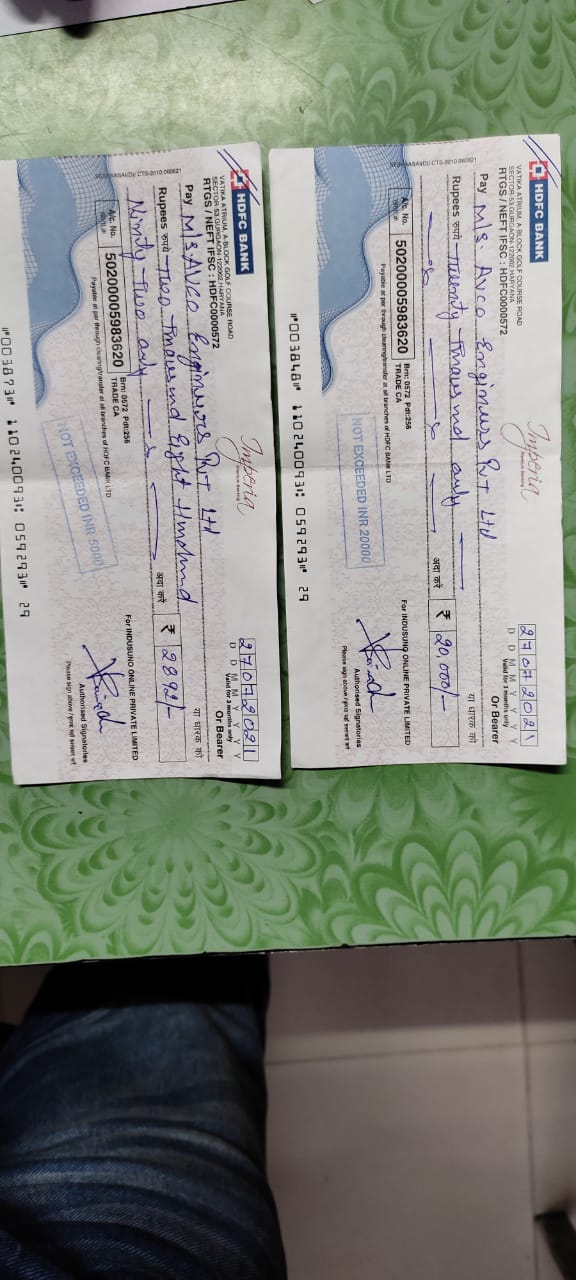 HDFC BANK
VATIKA ATRIUM, A-BLOCK GOLF COURSE ROAD
SECTOR-53,GURGAON-122002,HARYANA
RTGS / NEFT IFSC : HDFC0000572
Imperia
27072021
D D M M Y Y Y Y
Valid for 3 months only
Pay M/s. Avco Engineers Pvt Ltd Or Bearer
या धारक को
Rupees रुपये Twenty Thousand only
अदा करे ₹ 20,000/-
A/c. No. 50200005983620 Brn: 0572 Pdt:256
TRADE CA
For INDUSUNO ONLINE PRIVATE LIMITED
Payable at par through clearing/transfer at all branches of HDFC BANK LTD
NOT EXCEEDED INR 20000
Authorised Signatories
Please sign above /
⑈003848⑈ 110240093⑆ 059293⑈ 29
HDFC BANK
VATIKA ATRIUM, A-BLOCK GOLF COURSE ROAD
SECTOR-53,GURGAON-122002,HARYANA
RTGS / NEFT IFSC : HDFC0000572
Imperia
27072021
D D M M Y Y Y Y
Valid for 3 months only
Pay M/s. Avco Engineers Pvt Ltd Or Bearer
या धारक को
Rupees रुपये Two Thousand Eight Hundred
Ninty Two only अदा करे ₹ 2892/-
A/c. No. 50200005983620 Brn: 0572 Pdt:256
TRADE CA
For INDUSUNO ONLINE PRIVATE LIMITED
Payable at par through clearing/transfer at all branches of HDFC BANK LTD
NOT EXCEEDED INR 5000
Authorised Signatories
Please sign above /
⑈003873⑈ 110240093⑆ 059293⑈ 29